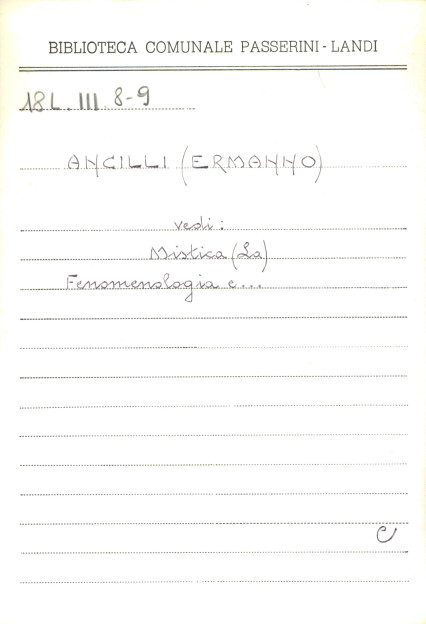 BIBLIOTECA COMUNALE PASSERINI-LANDI
18L. III. 8-9
ANCILLI (ERMANNO)
vedi:
Mistica (La)
Fenomenologia e...
C